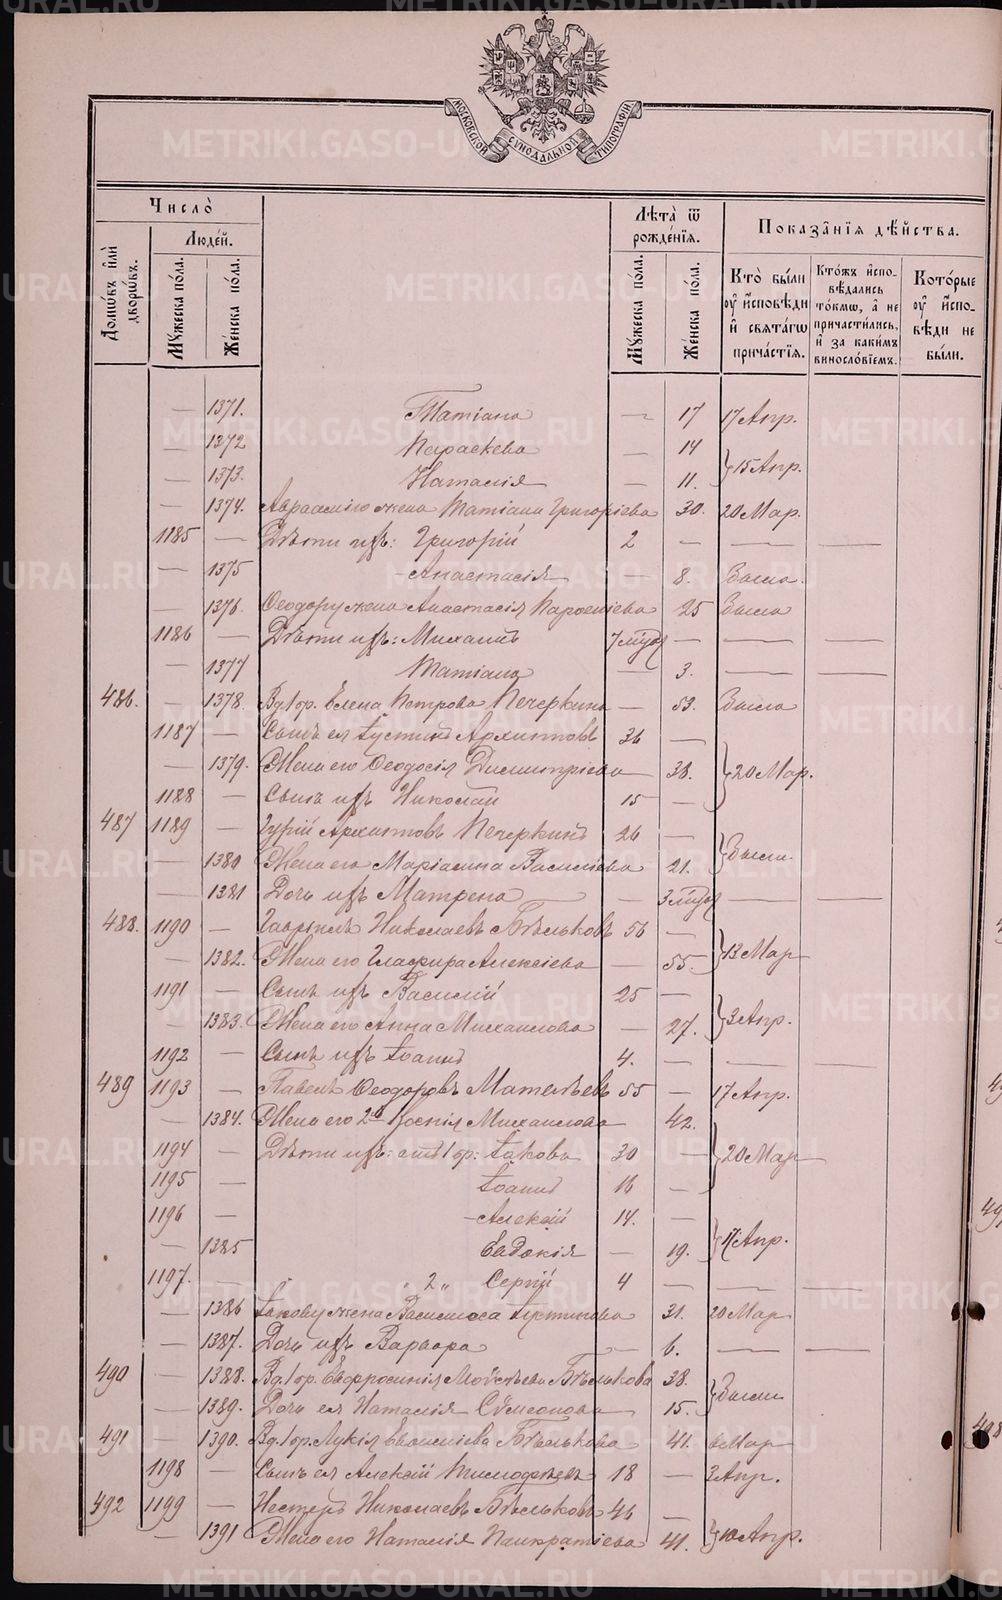 METRIKI.GASO-URAL.RU
МОСКОВСКОЙ СѴНОДАЛЬНОЙ ТИПОГРАФІИ
Число̀
Лѣта̀ ѿ рожде́нїя.
Показа̑нїя дѣ́йства.
Домѡ́въ и҆лѝ дворѡ́въ.
Люде́й.
Мꙋ́жеска по́ла.
Же́нска по́ла.
Мꙋ́жеска по́ла.
Же́нска по́ла.
Кто̀ бы́ли оу҆ и҆сповѣ́ди и҆ свѧта́гѡ прича́стїя.
Кто́жъ и҆спо- вѣ́дались то́кмѡ, а҆ не причасти́лись, и҆ за каки́мъ винosло́вїемъ.
Кото́рые оу҆ и҆спо- вѣ́ди не бы́ли.
— 1371. Татіана — 17 17 Апр.
— 1372 Параскева — 14
— 1373. Наталія — 11. } 15 Апр.
— 1374. Авраамію жена Татіана Григоріева 30. 20 Мар.
1185 — Дѣти ихъ: Григорій 2 — — —
— 1375 Анастасія — 8. Была
— 1376. Ѳеодору жена Анастасія 25 Была
1186 — Дѣти ихъ: Михаилъ 7 — — —
— 1377 Татіана — 3. — —
486. — 1378. Вд. Елена Петрова Печеркина — 53. Была
1187 — Сынъ ея Іустинъ Архиповъ 36 —
— 1379. Жена его Ѳеодосія Димитріева — 38. } 20 Мар.
1188 — Сынъ ихъ Николай 15 —
487 1189 — Гурій Архиповъ Печеркинъ 26 —
— 1380 Жена его Маріамна Василіева 21. } Были
— 1381 Дочь ихъ Матрена — 3 — —
488. 1190 — Гавріилъ Николаевъ Бѣльковъ 56 —
— 1382. Жена его Глафира Алексіева — 55. } 13 Мар
1191 — Сынъ ихъ Василій 25 —
— 1383. Жена его Анна Михаилова — 27. } 3 Апр.
1192 — Сынъ ихъ Іоаннъ 4. — — —
489 1193 — Павелъ Ѳеодоровъ Матвѣевъ 55 — 17 Апр.
— 1384. Жена его 2я Михаилова 42.
1194 — Дѣти ихъ: Іаковъ 30 — } 20 Мар
1195 — Іоаннъ 16 —
1196 — Алексій 14. —
— 1385 Евдокія — 19. } 17 Апр.
1197. — „ 2 „ Сергій 4 — — —
— 1386 Іакову жена Василисса Іустинова 31. 20 Мар
— 1387. Дочь ихъ Варвара — 6. — —
490 — 1388. Вд. Евфросинія Бѣлькова 38.
— 1389. Дочь ея Наталія Сѵмеонова 15. } Были
491 — 1390. Вд. Лукія Бѣлькова 41. 6 Мар
1198 — Сынъ ея Алексій Тимоѳеевъ 18 — 3 Апр.
492 1199 — Несторъ Николаевъ Бѣльковъ 46 —
— 1391 Жена его Наталія Панкратіева 41. } 10 Апр.